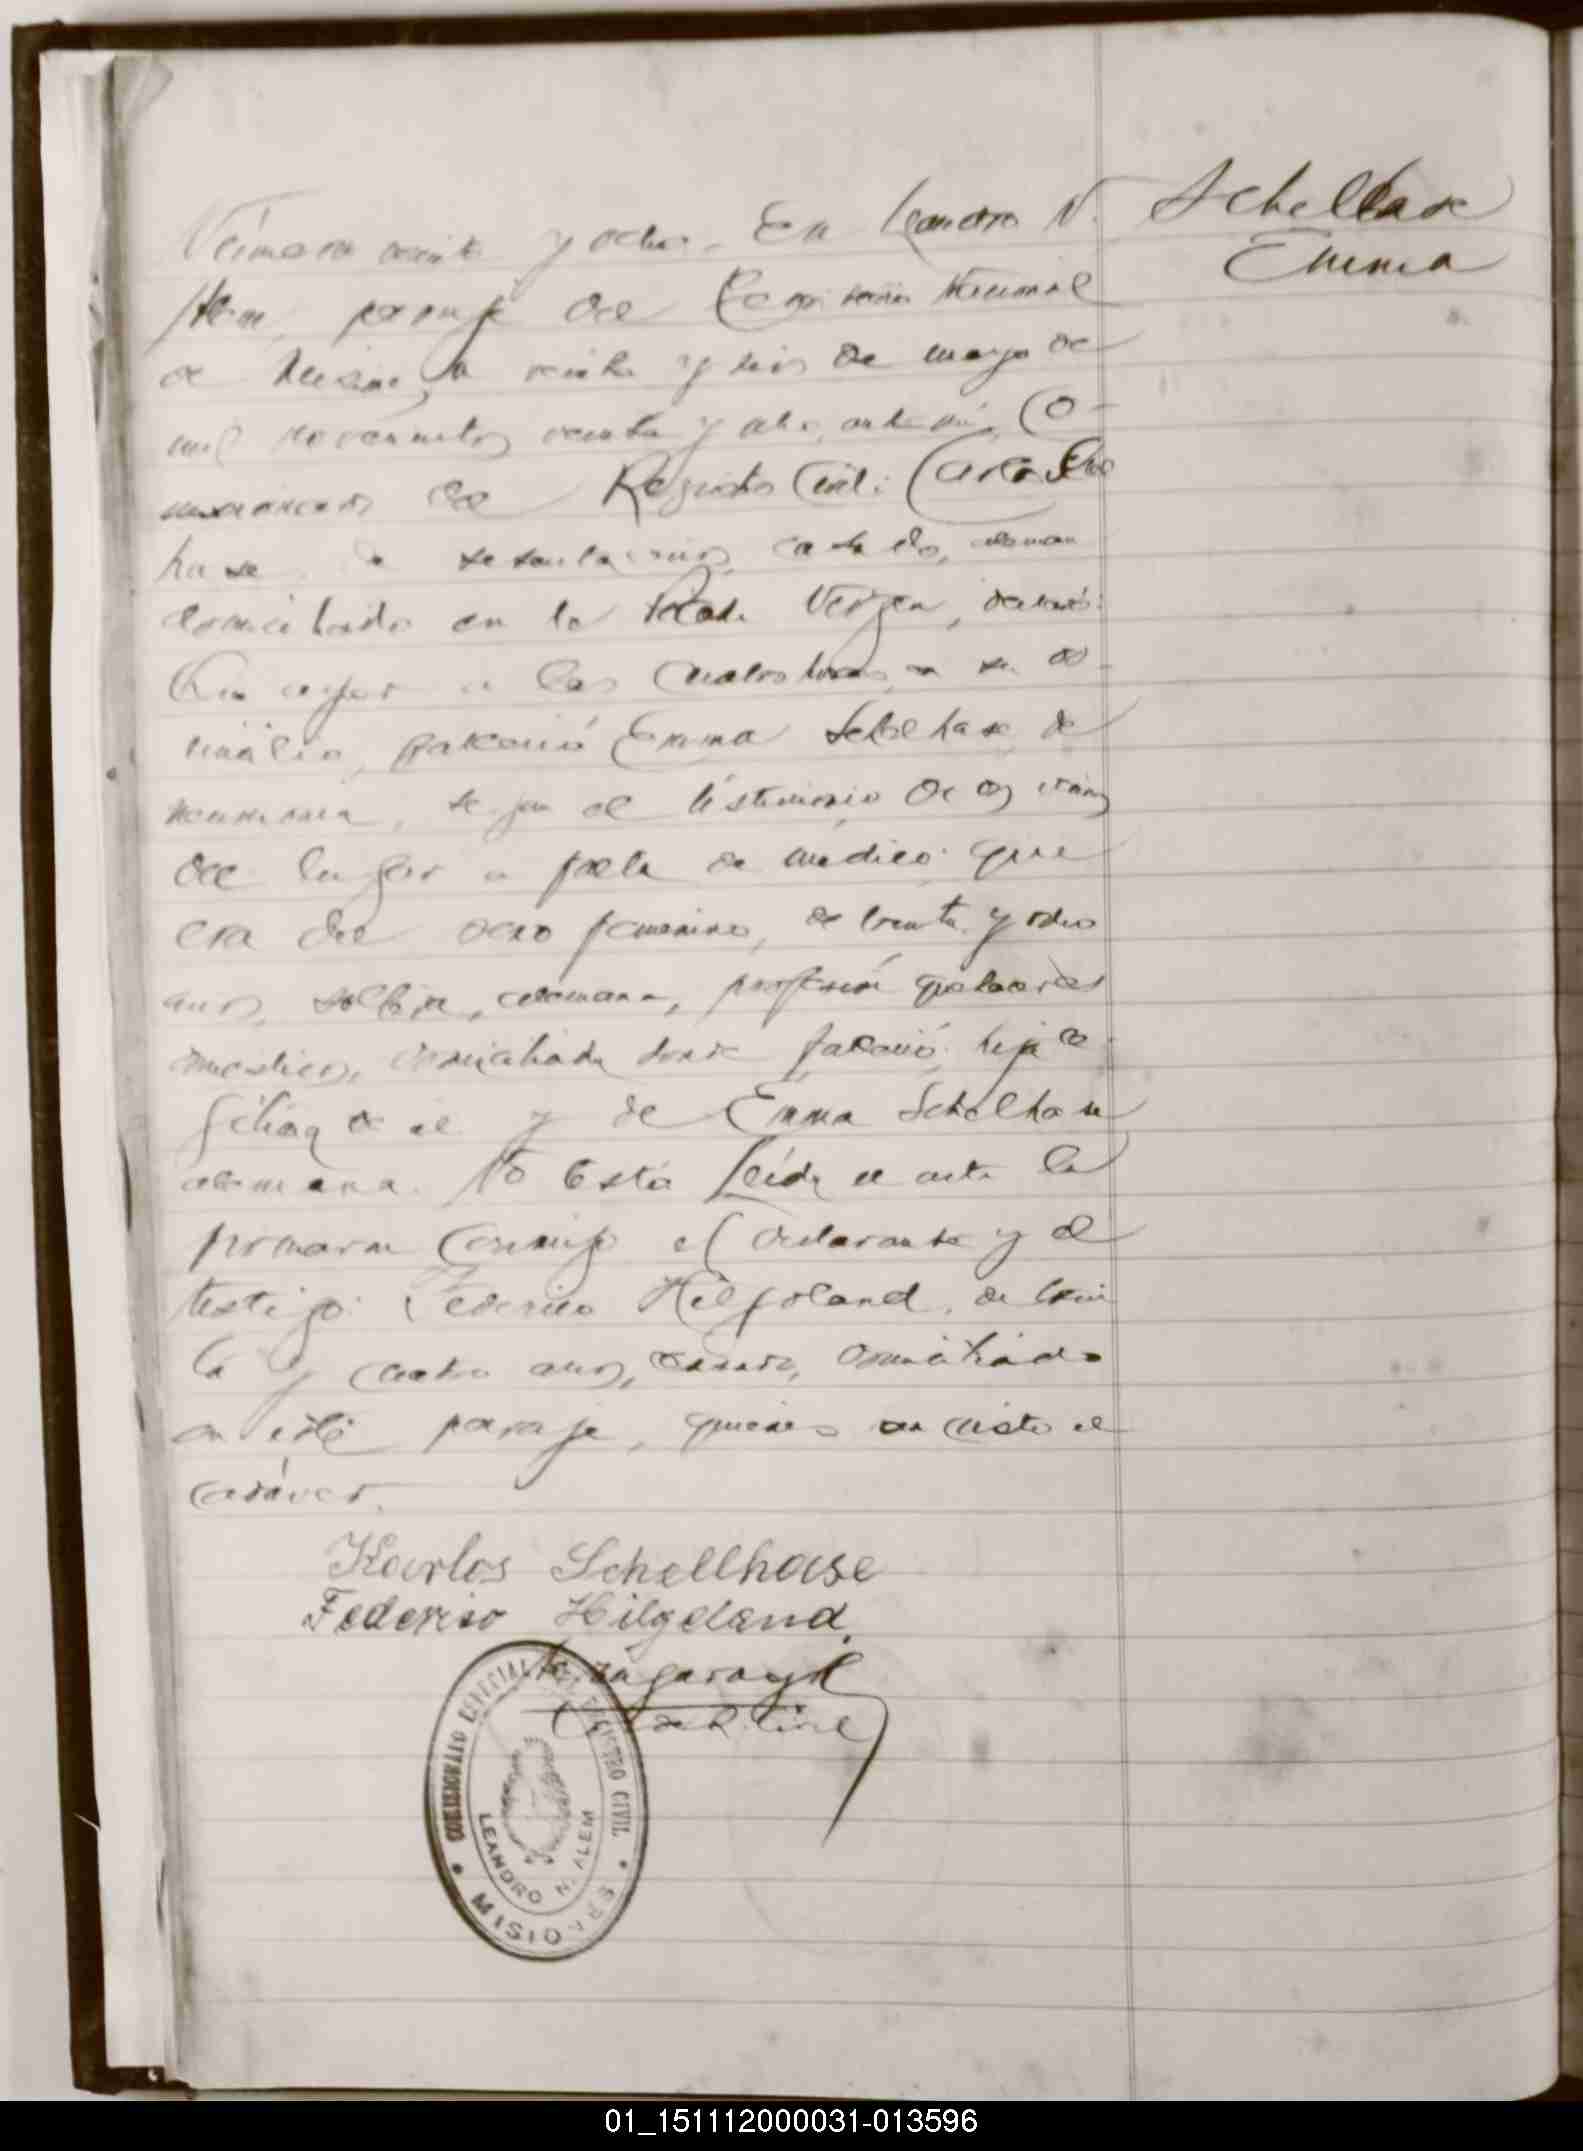 Schellhase
Emma
Número veinte y ocho. En Leandro N.
Alem, paraje del Territorio Nacional
de Misiones, a veinte y seis de mayo de
mil novecientos veinte y ocho, ante mí, Co-
misionado del Registro Civil: Carlos Schel
hase, de sesenta años, casado, aleman
domiciliado en la Picada Vergen, declaró:
Que ayer a las cuatro horas, en su do-
micilio, falleció Emma Schelhase, de
neumonia, segun el testimonio de dos vecinos
del lugar a falta de médico: que
era del sexo femenino, de treinta y ocho
años, soltera, alemana, profesión quehaceres
domesticos, domiciliada donde falleció: hija le-
gitima de el y de Emma Schelhase
alemana.
Leida el acta la
firmaron conmigo el declarante y el
testigo: Federico Hilgoland, de trein
ta y cuatro años, casado, domiciliado
en este paraje, quienes an visto el
cadáver.
Karlos Schellhase
Federico Hilgeland.
C. del R. Civil
COMISIONADO ESPECIAL DEL REGISTRO CIVIL
LEANDRO N. ALEM
MISIONES
01_151112000031-013596